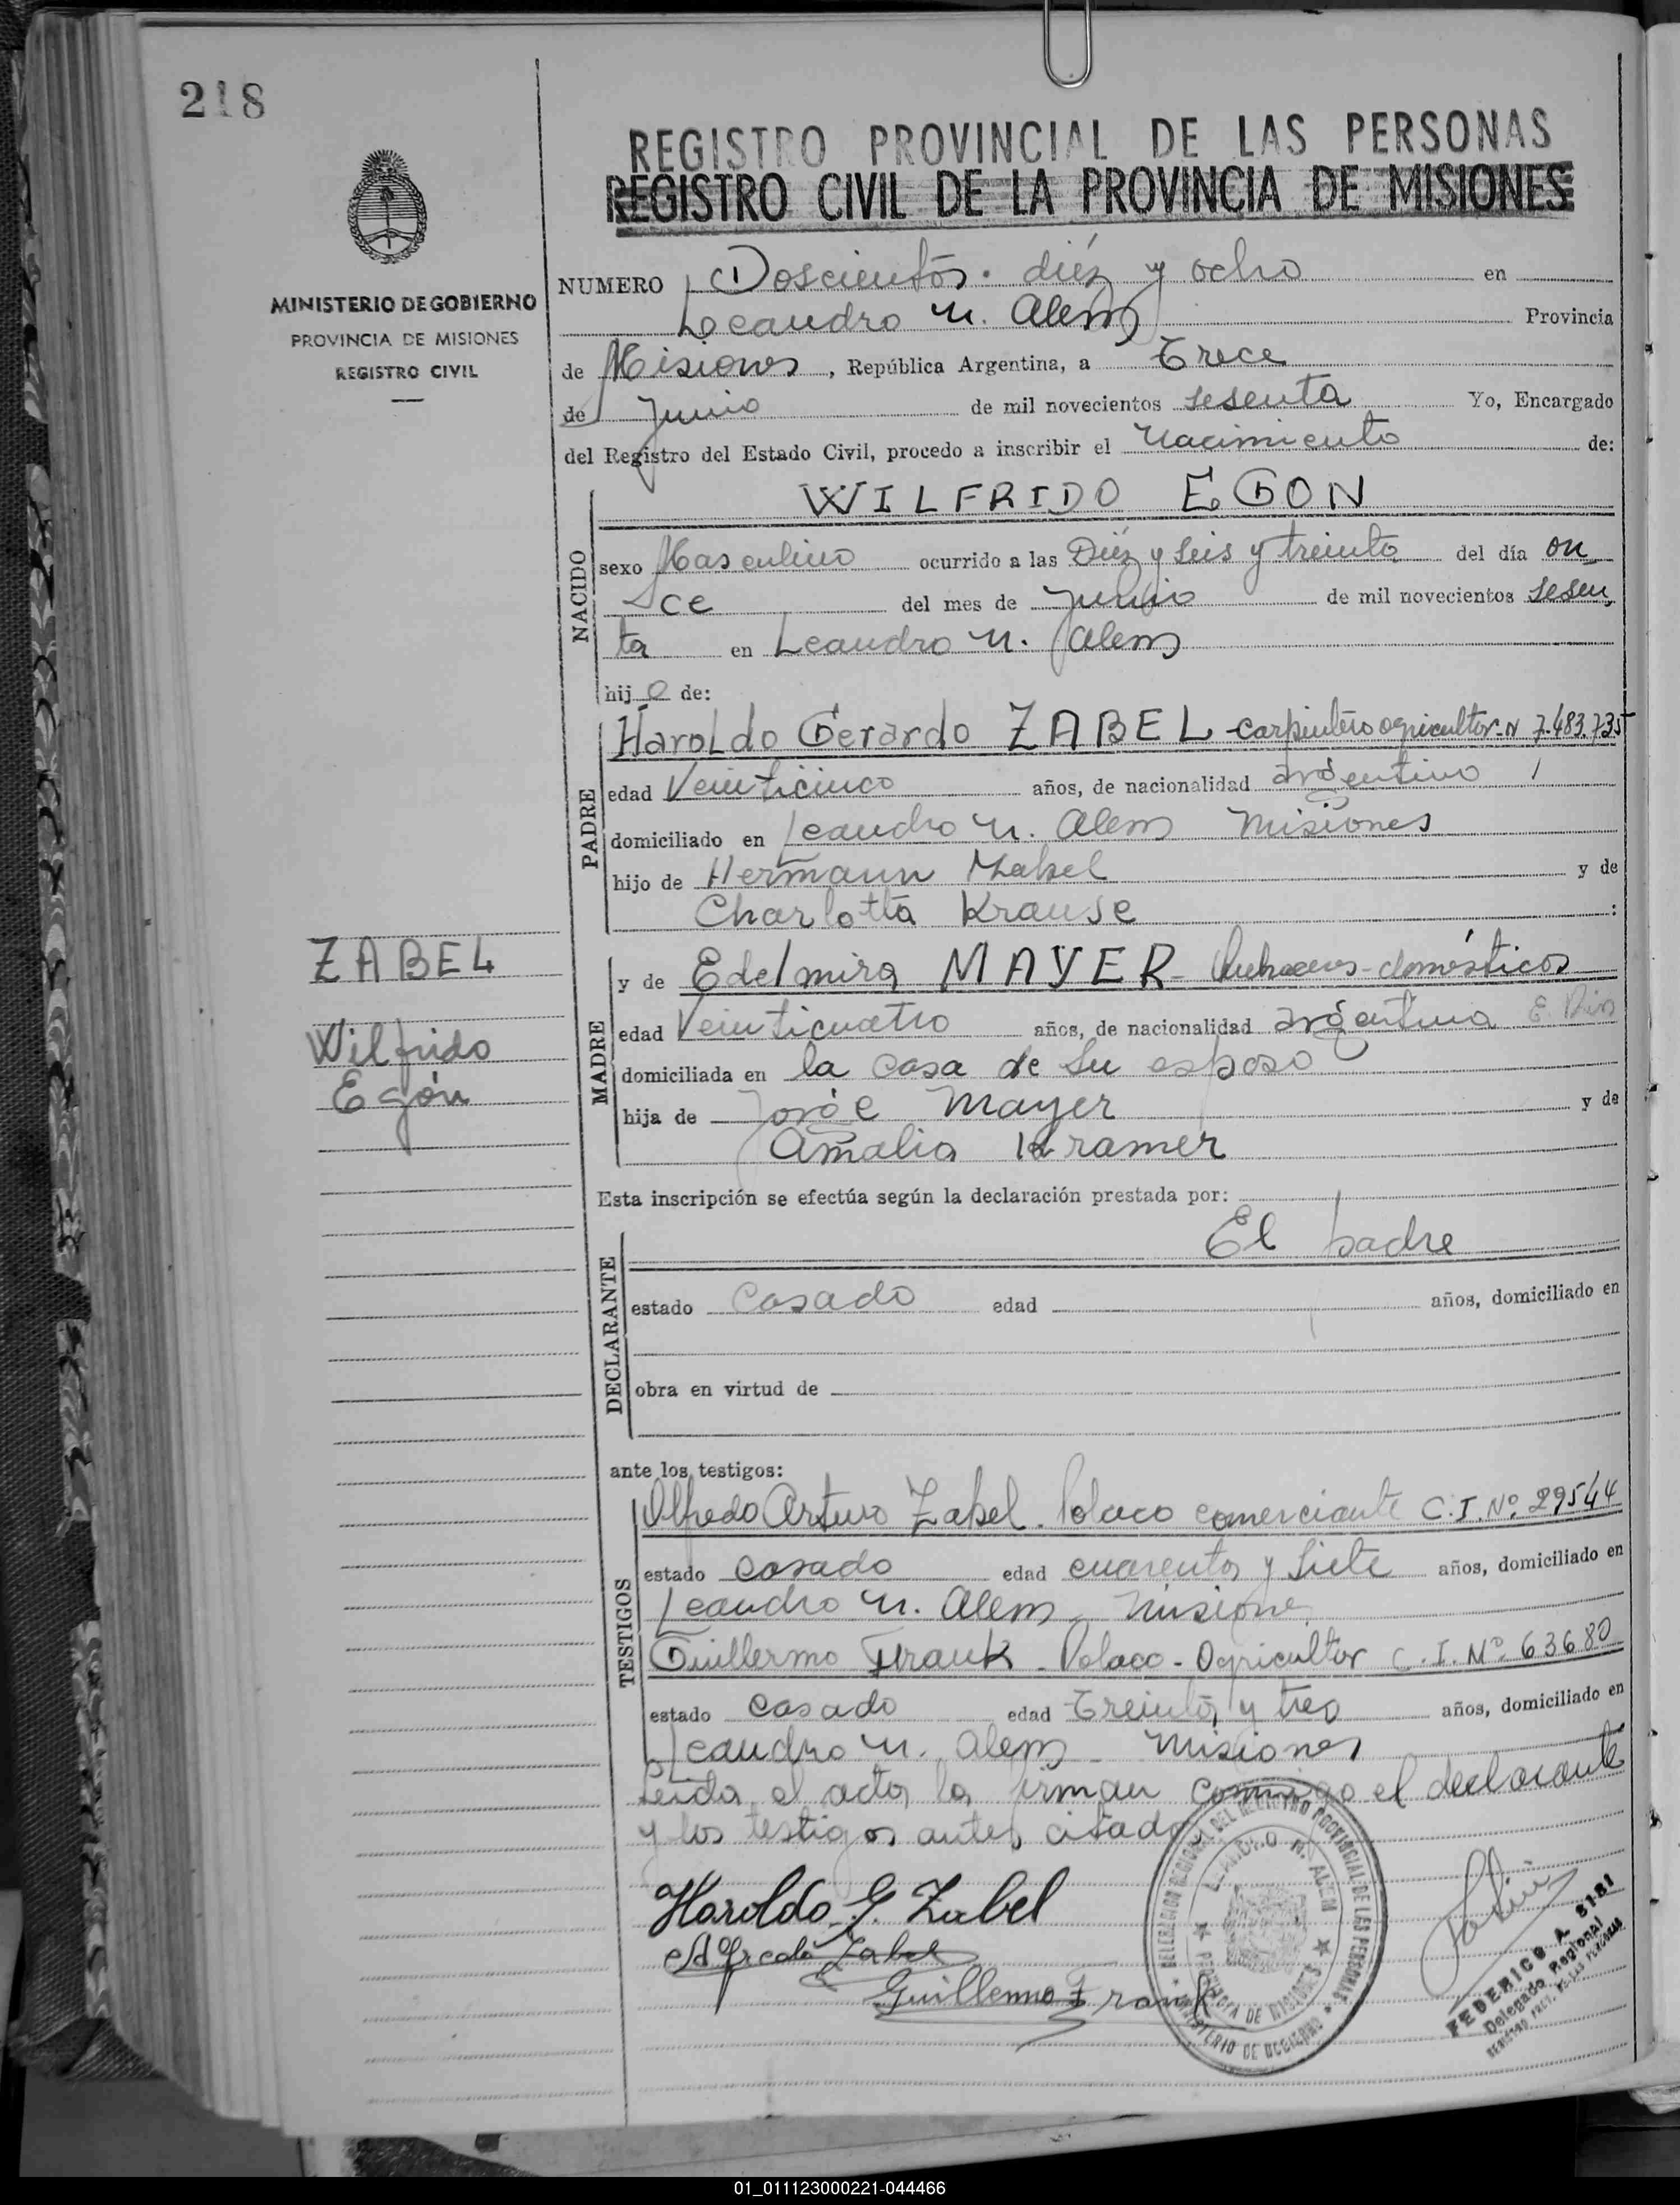 218
MINISTERIO DE GOBIERNO
PROVINCIA DE MISIONES
REGISTRO CIVIL
REGISTRO PROVINCIAL DE LAS PERSONAS
REGISTRO CIVIL DE LA PROVINCIA DE MISIONES
NUMERO Doscientos diéz y ocho en
Leandro N. Alem Provincia
de Misiones, República Argentina, a Trece
de Junio de mil novecientos sesenta Yo, Encargado
del Registro del Estado Civil, procedo a inscribir el Nacimiento de:
NACIDO
WILFRIDO EGON
sexo Masculino ocurrido a las Diéz y seis y treinta del día on
ce del mes de Junio de mil novecientos sesen
ta en Leandro N. Alem
hijo de:
PADRE
Haroldo Gerardo ZABEL - carpintero agricultor - N 7.483.735
edad Veinticinco años, de nacionalidad argentino
domiciliado en Leandro N. Alem Misiones
hijo de Hermann Zabel y de
Charlotta Krause :
ZABEL
Wilfrido
Egón
MADRE
y de Edelmira MAYER - Quehaceres - domésticos
edad Veinticuatro años, de nacionalidad argentina
domiciliada en la casa de su esposo
hija de Jorge Mayer y de
Amalia Kramer
Esta inscripción se efectúa según la declaración prestada por:
DECLARANTE
El padre
estado Casado edad años, domiciliado en
obra en virtud de
ante los testigos:
TESTIGOS
Alfredo Arturo Zabel. Polaco comerciante C.I. Nº 29544
estado casado edad cuarenta y siete años, domiciliado en
Leandro N. Alem, Misiones
Guillermo Frank - Polaco - Agricultor C.I. Nº 63680
estado casado edad Treinta y tres años, domiciliado en
Leandro N. Alem - Misiones
Leída el acta la firman conmigo el declarante
y los testigos antes citados
Haroldo G. Zabel
Alfredo Zabel
Guillermo Frank
DELEGACION REGIONAL DEL REGISTRO PROVINCIAL DE LAS PERSONAS
LEANDRO N. ALEM
PROVINCIA DE MISIONES
MINISTERIO DE GOBIERNO
FEDERICO A.
Delegado Regional
REGISTRO PROV. DE LAS PERSONAS
01_011123000221-044466